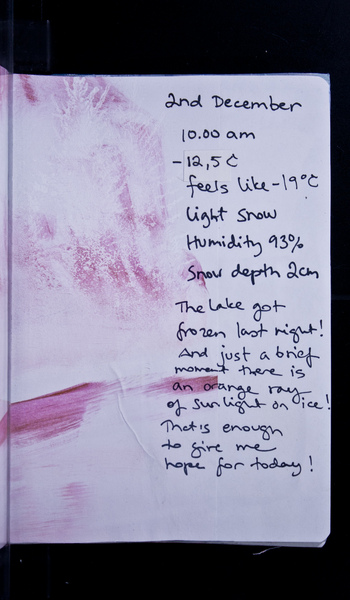 2nd December
10.00 am
-12,5 C
feels like -19°C
Light snow
Humidity 93%
Snow depth 2cm
The Lake got
frozen last night!
And just a brief
moment there is
an orange ray
of sunlight on ice!
That is enough
to give me
hope for today!